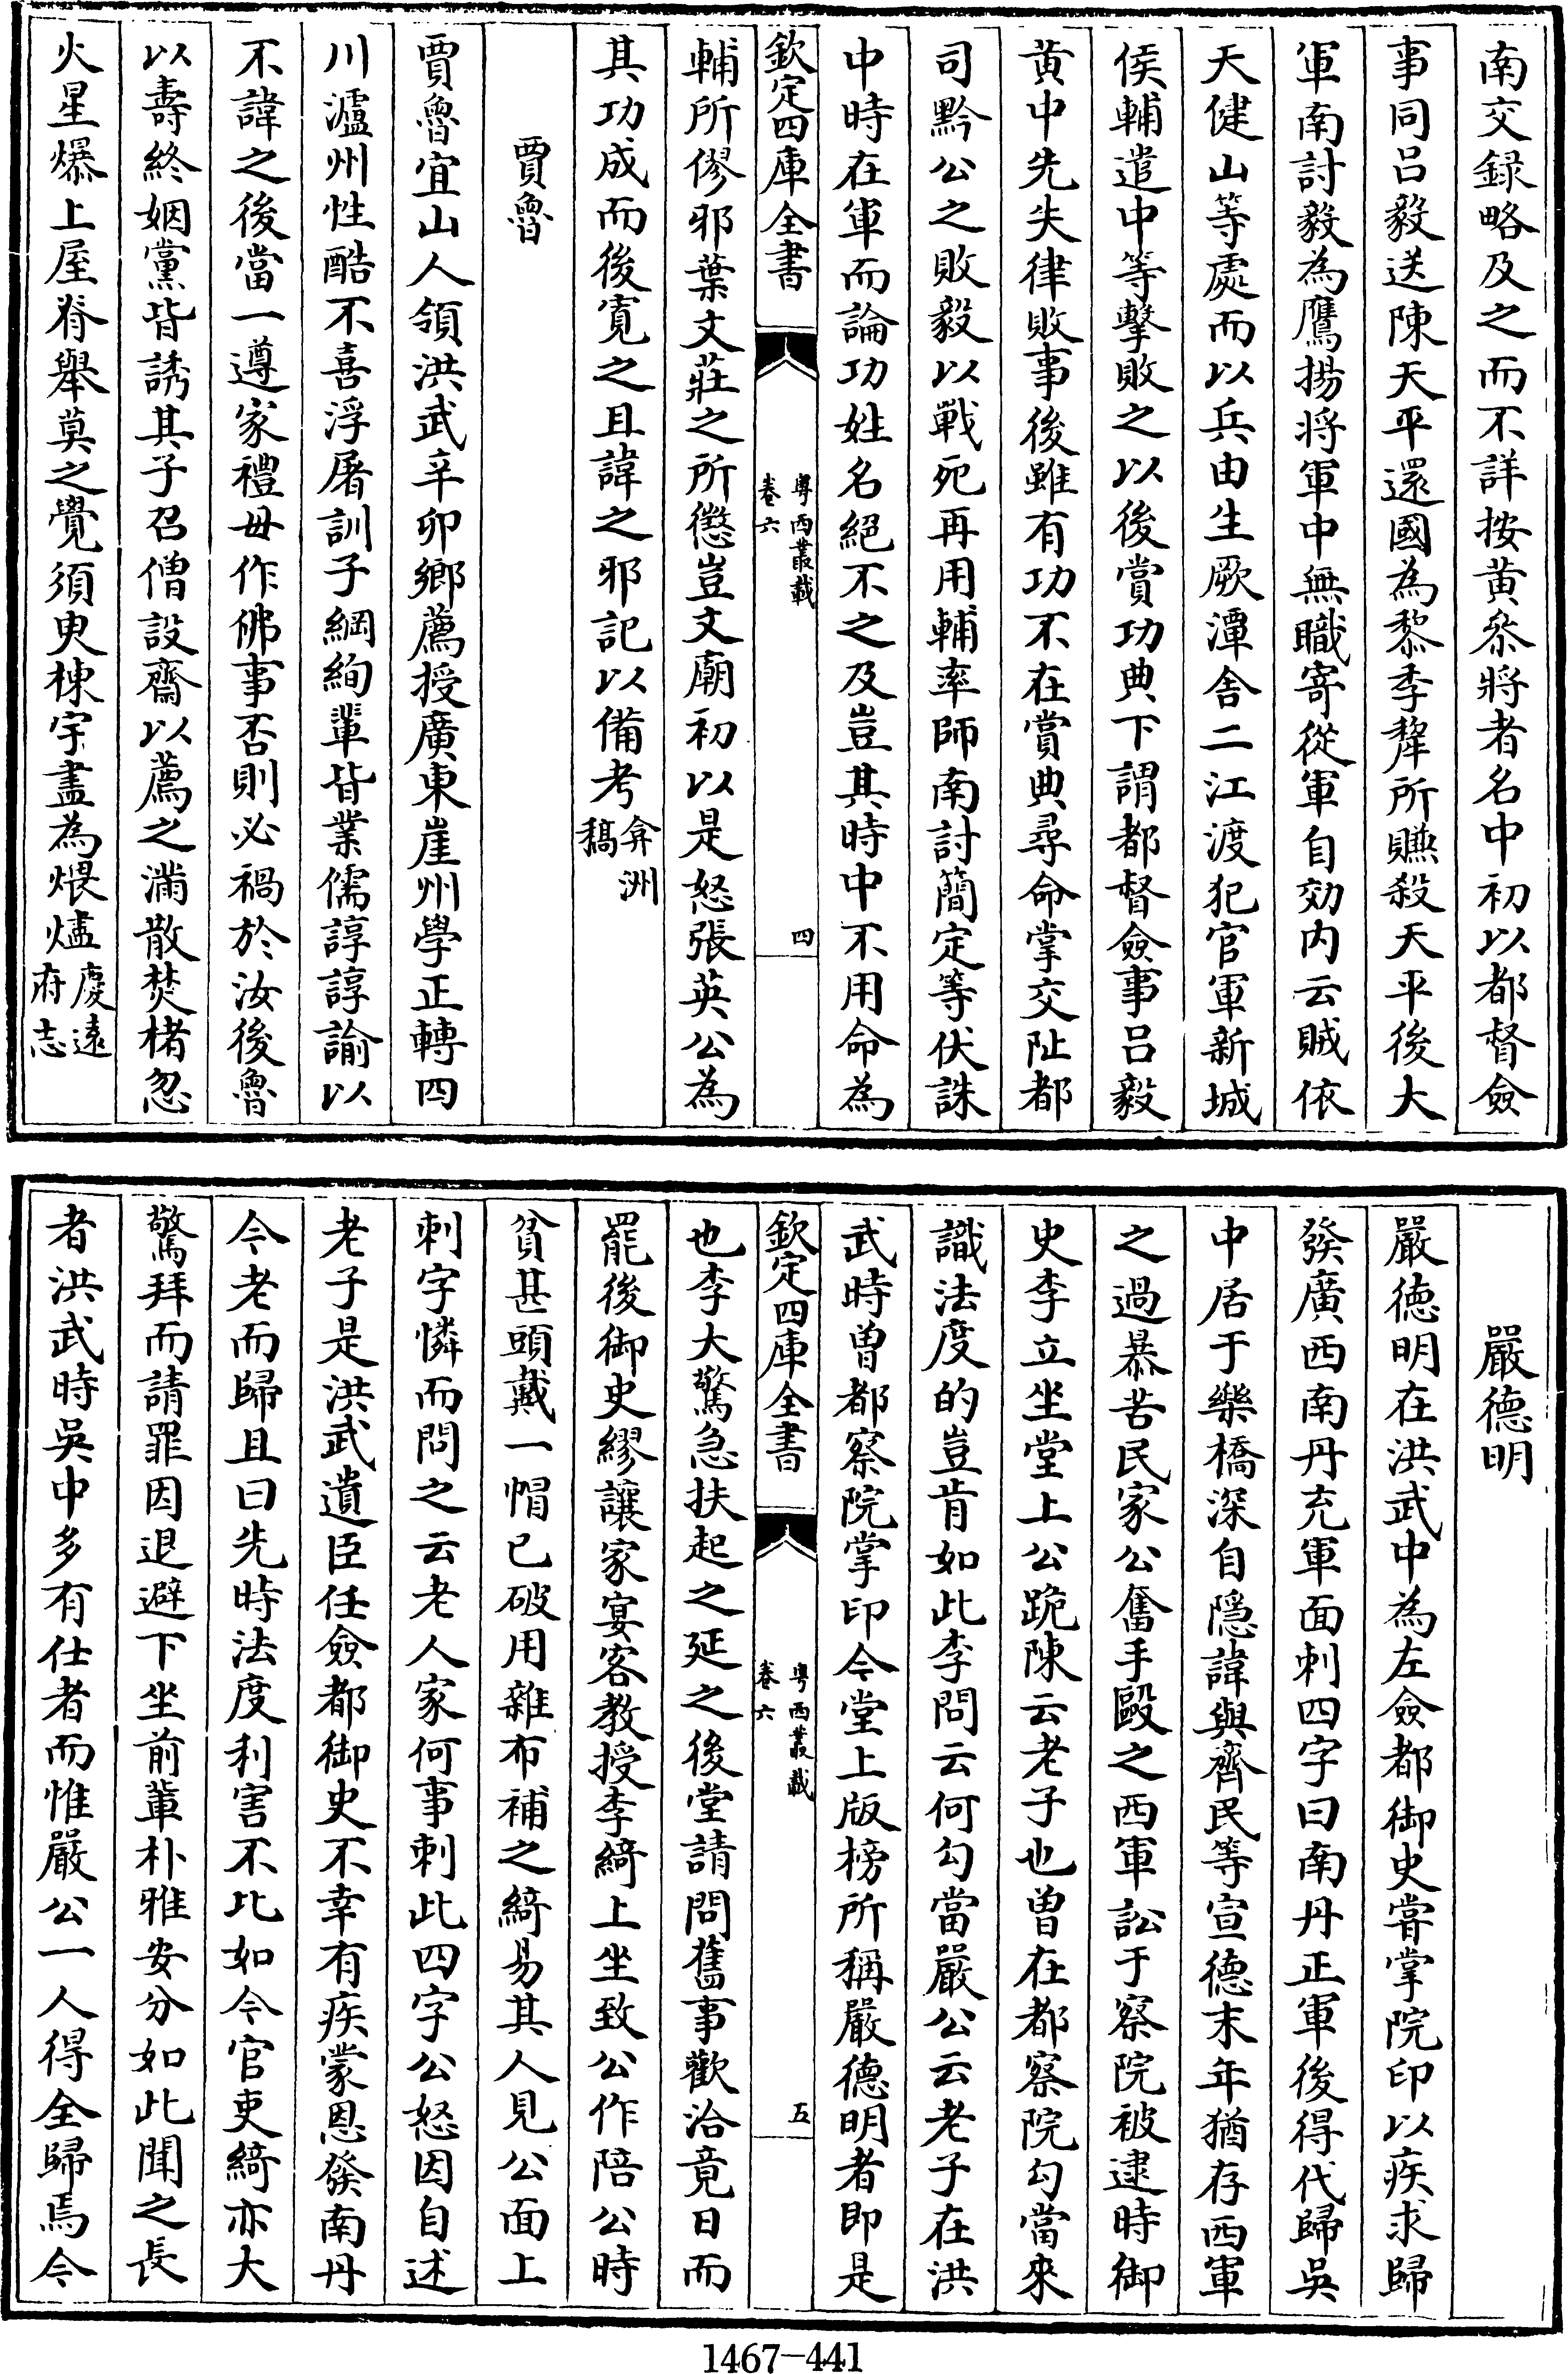 南交録略及之而不詳按黄叅將者名中初以都督僉
事同呂毅送陳天平還國為黎季犛所賺殺天平後大
軍南討毅為鷹揚將軍中無職寄從軍自効内云賊依
天健山等處而以兵由生厥潭舍二江渡犯官軍新城
侯輔遣中等擊敗之以後賞功典下謂都督僉事呂毅
黄中先失律敗事後雖有功不在賞典尋命掌交阯都
司黔公之敗毅以戰死再用輔率師南討簡定等伏誅
中時在軍而論功姓名絕不之及豈其時中不用命為
欽定四庫全書
粤西叢載
卷六
四
輔所僇邪葉文莊之所懲豈文廟初以是怒張英公為
其功成而後寛之且諱之邪記以備考弇洲
稿
賈魯
賈魯宜山人領洪武辛卯鄉薦授廣東崖州學正轉四
川瀘州性酷不喜浮屠訓子綱絢輩皆業儒諄諄諭以
不諱之後當一遵家禮毋作佛事否則必禍於汝後魯
以壽終姻黨皆誘其子召僧設齋以薦之滿散焚楮忽
火星爆上屋脊舉莫之覺須臾棟宇盡為煨燼慶遠
府志
嚴德明
嚴德明在洪武中為左僉都御史甞掌院印以疾求歸
發廣西南丹充軍面刺四字曰南丹正軍後得代歸吳
中居于樂橋深自隠諱與齊民等宣德末年猶存西軍
之過暴苦民家公奮手毆之西軍訟于察院被逮時御
史李立坐堂上公跪陳云老子也曾在都察院勾當來
識法度的豈肯如此李問云何勾當嚴公云老子在洪
武時曽都察院掌印今堂上版榜所稱嚴德明者即是
欽定四庫全書
粤西叢載
卷六
五
也李大驚急扶起之延之後堂請問舊事歡洽竟日而
罷後御史繆讓家宴客教授李綺上坐致公作陪公時
貧甚頭戴一帽已破用雜布補之綺易其人見公面上
刺字憐而問之云老人家何事刺此四字公怒因自述
老子是洪武遺臣任僉都御史不幸有疾蒙恩發南丹
今老而歸且曰先時法度利害不比如今官吏綺亦大
驚拜而請罪因退避下坐前輩朴雅安分如此聞之長
者洪武時吳中多有仕者而惟嚴公一人得全歸焉今
1467-441